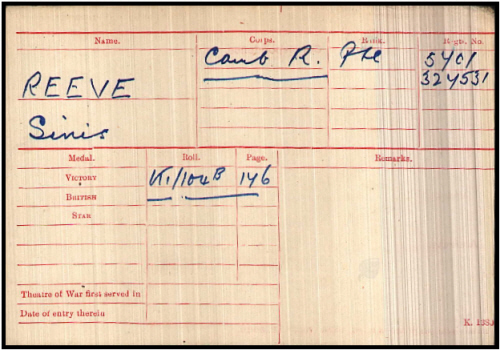 Name. Corps. Rank. Regtl. No.
REEVE Camb R. Pte 5401
324531
Sinis
Medal. Roll. Page. Remarks.
VICTORY K1/104B 146
BRITISH
STAR
Theatre of War first served in
Date of entry therein
K. 1380